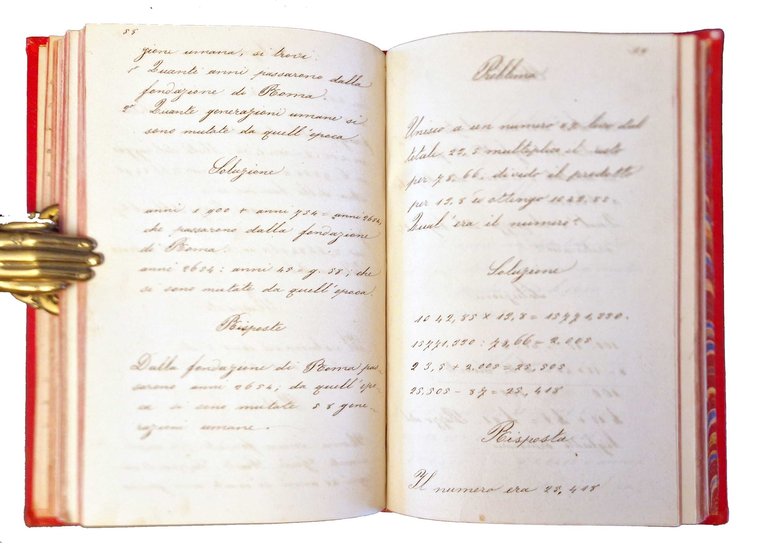 58
zione umana, si trovi:
1º Quanti anni passarono dalla
fondazione di Roma.
2º Quante generazioni umane si
sono mutate da quell'epoca
Soluzione
anni 1900 + anni 754 = anni 2654,
che passarono dalla fondazione
di Roma
anni 2654 : anni 45 = g. 58; che
si sono mutate da quell'epoca.
Risposte
Dalla fondazione di Roma pas-
sarono anni 2654; da quell'epo-
ca si sono mutate 58 gene-
razioni umane.
Problema
Unisco a un numero 87 levo dal
totale 23,5 multiplico il resto
per 78,66, divido il prodotto
per e ottengo
Qual'era il numero?
Soluzione
= 
: 78,66 = 2.005
23,5 + 2.005 = 25,505
25,505 - 87 = 25,418
Risposta
Il numero era 25,418